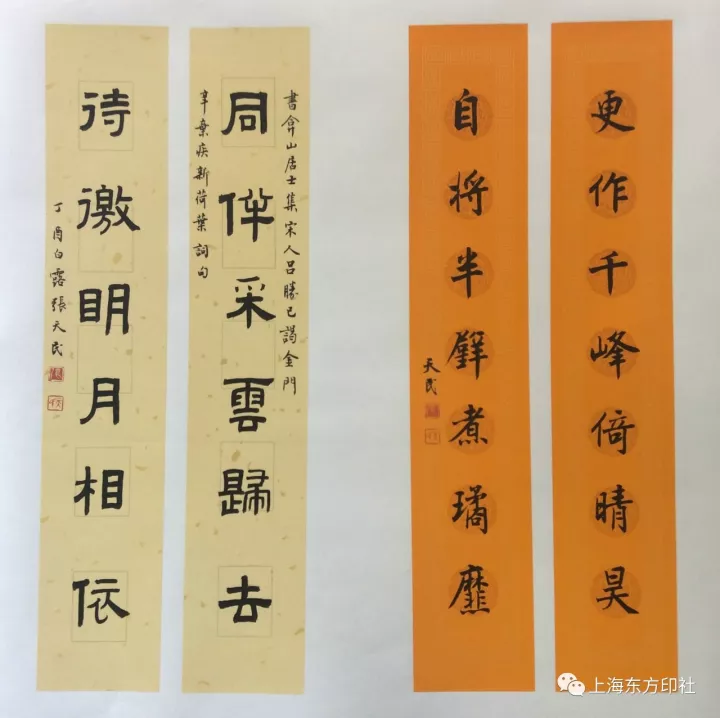 更作千峰倚晴昊
自将半璧煮璚靡
天民
書弇山居士集宋人呂勝己謁金門
辛棄疾新荷葉詞句
同伴采雲歸去
待徼眀月相依
丁酉白露張天民
上海东方印社